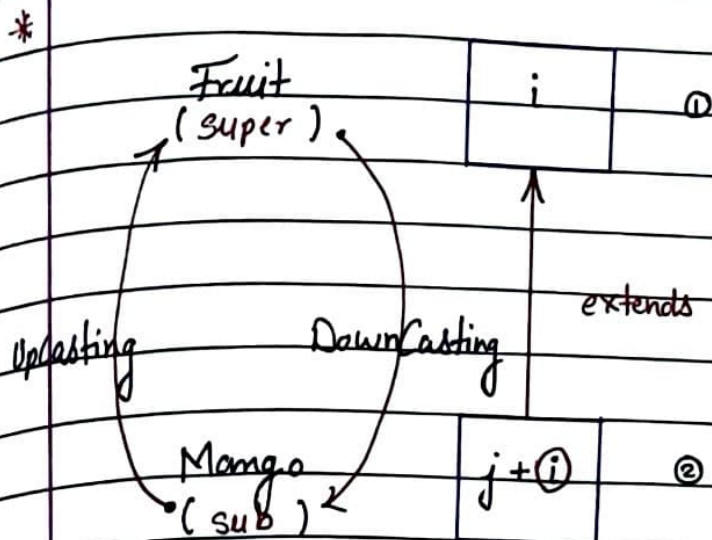 *
Fruit
(super)
i
①
extends
UpCasting
DownCasting
Mango
(sub)
j + ⓘ
②